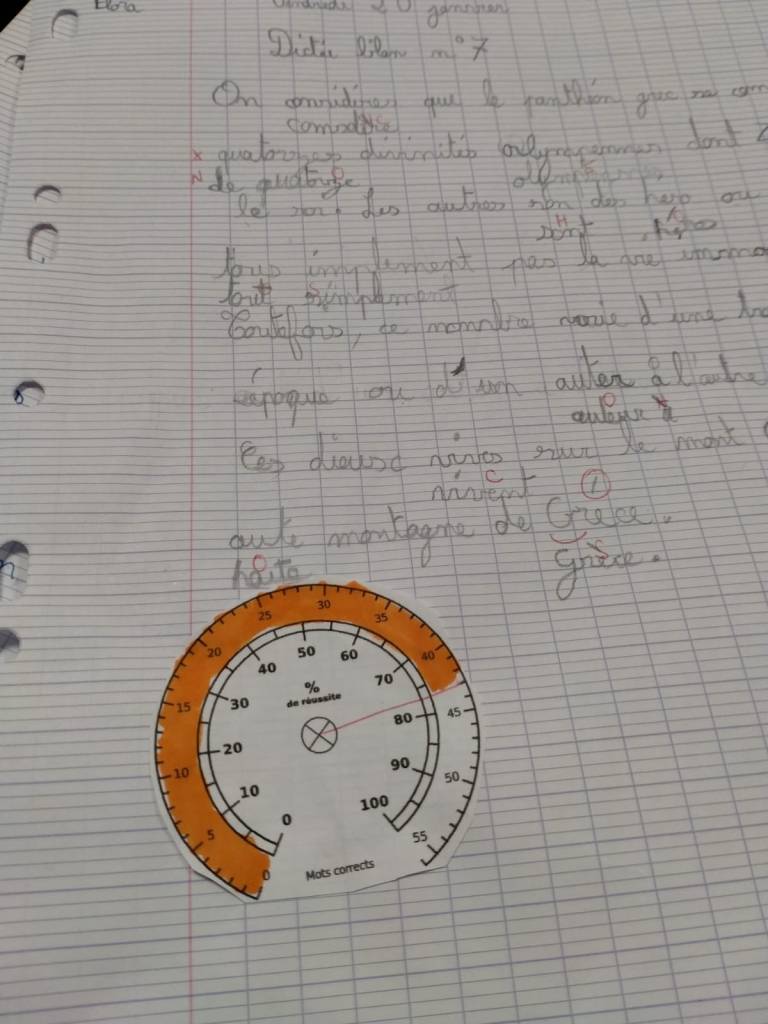 Elora
Vendredi 20 janvier
Dictée bilan n° 7
On que le panthéon grec se com
compose
x quatorzes divinités olympiennes dont Z
N de quatorze
le roi. Les autres non des hero ou
sont héros
tous implement pas la
tout simplement
Toutefois, ce nombre varie d'une
époque ou d'un auter à l'autre
auteur
Ces dieusc vives sur le mont
vivent 1
aute montagne de Grece.
haute Grèce.
0 5 10 15 20 25 30 35 40 45 50 55
0 10 20 30 40 50 60 70 80 90 100
%
de réussite
Mots corrects